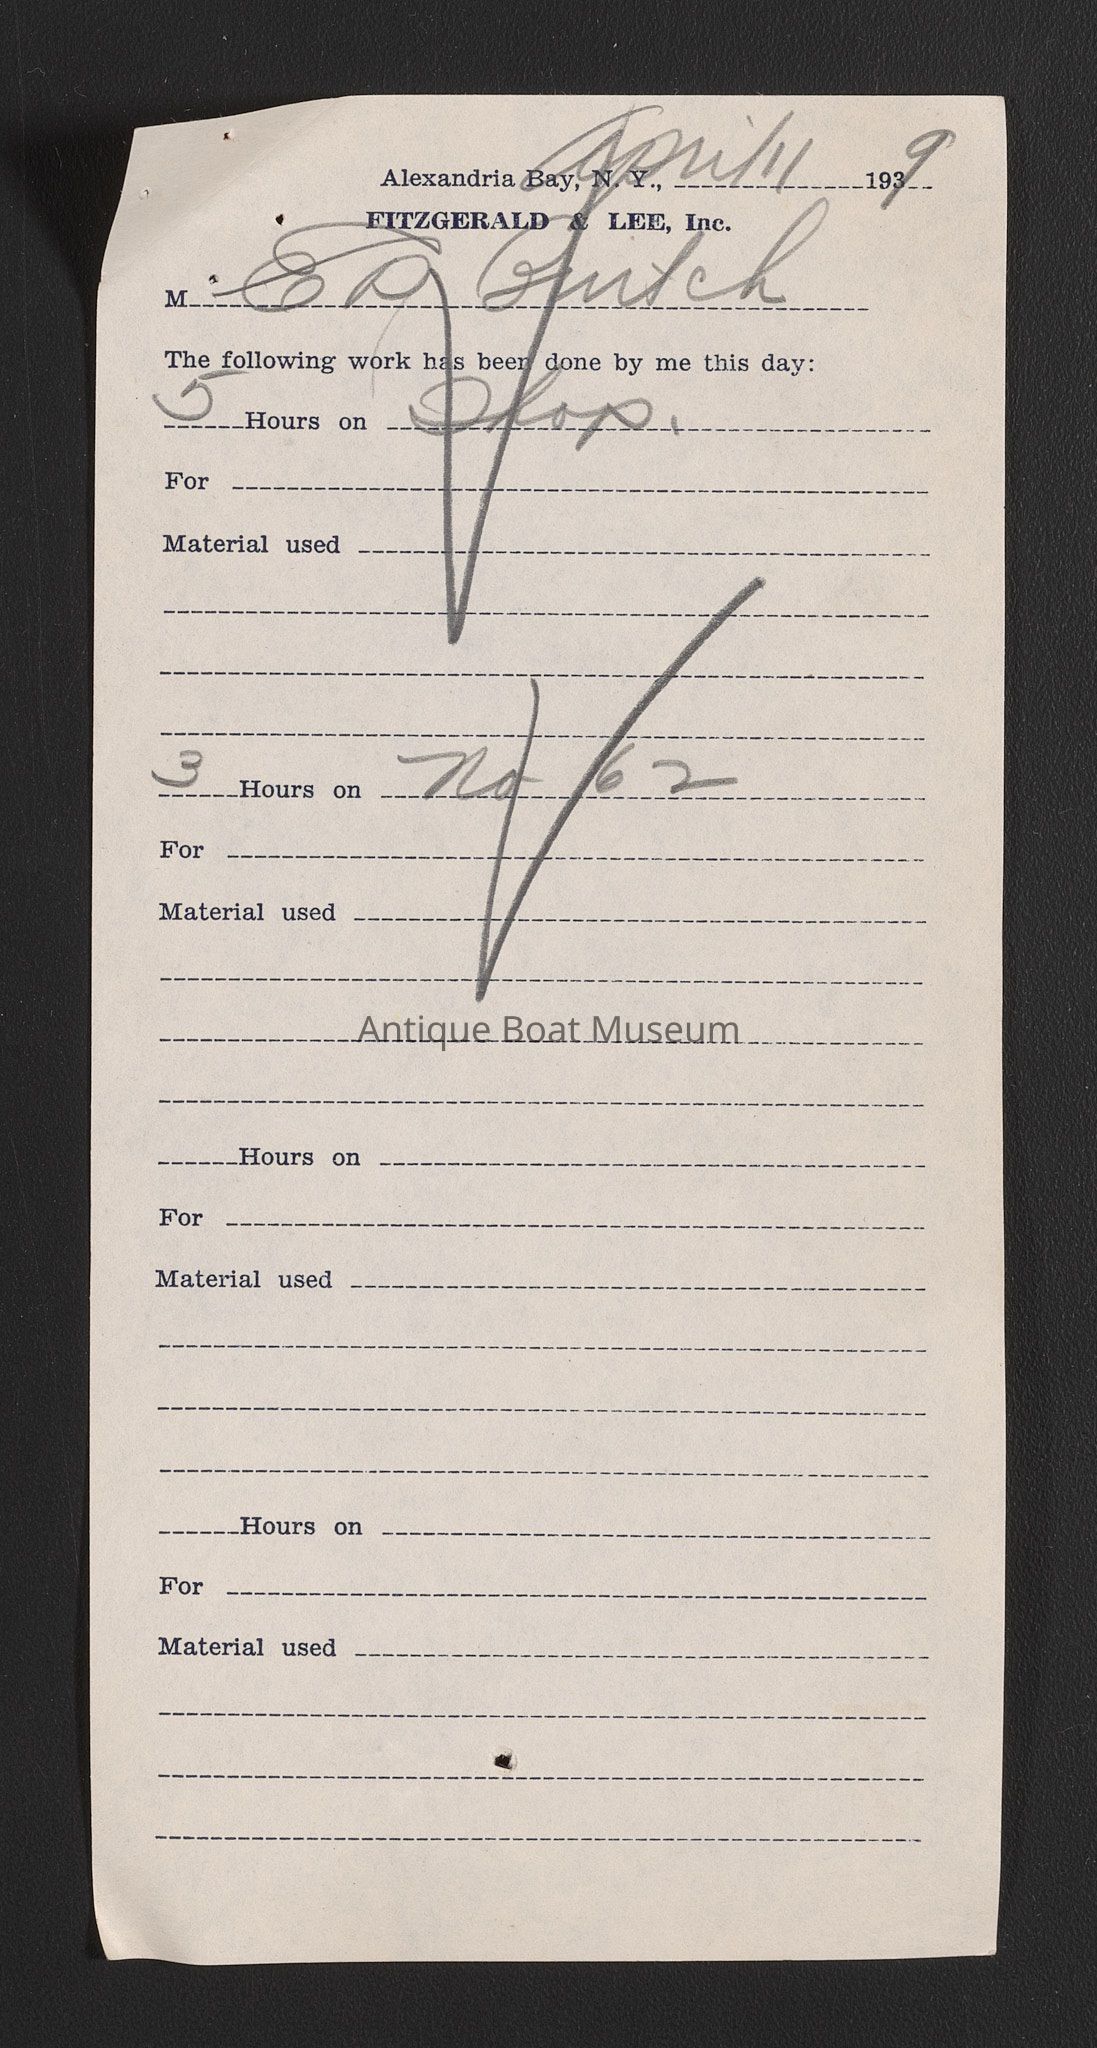 Alexandria Bay, N. Y., April 11 1939
FITZGERALD & LEE, Inc.
M Ed
The following work has been done by me this day:
5 Hours on Shop.
For
Material used
3 Hours on No 62
For
Material used
Antique Boat Museum
Hours on
For
Material used
Hours on
For
Material used